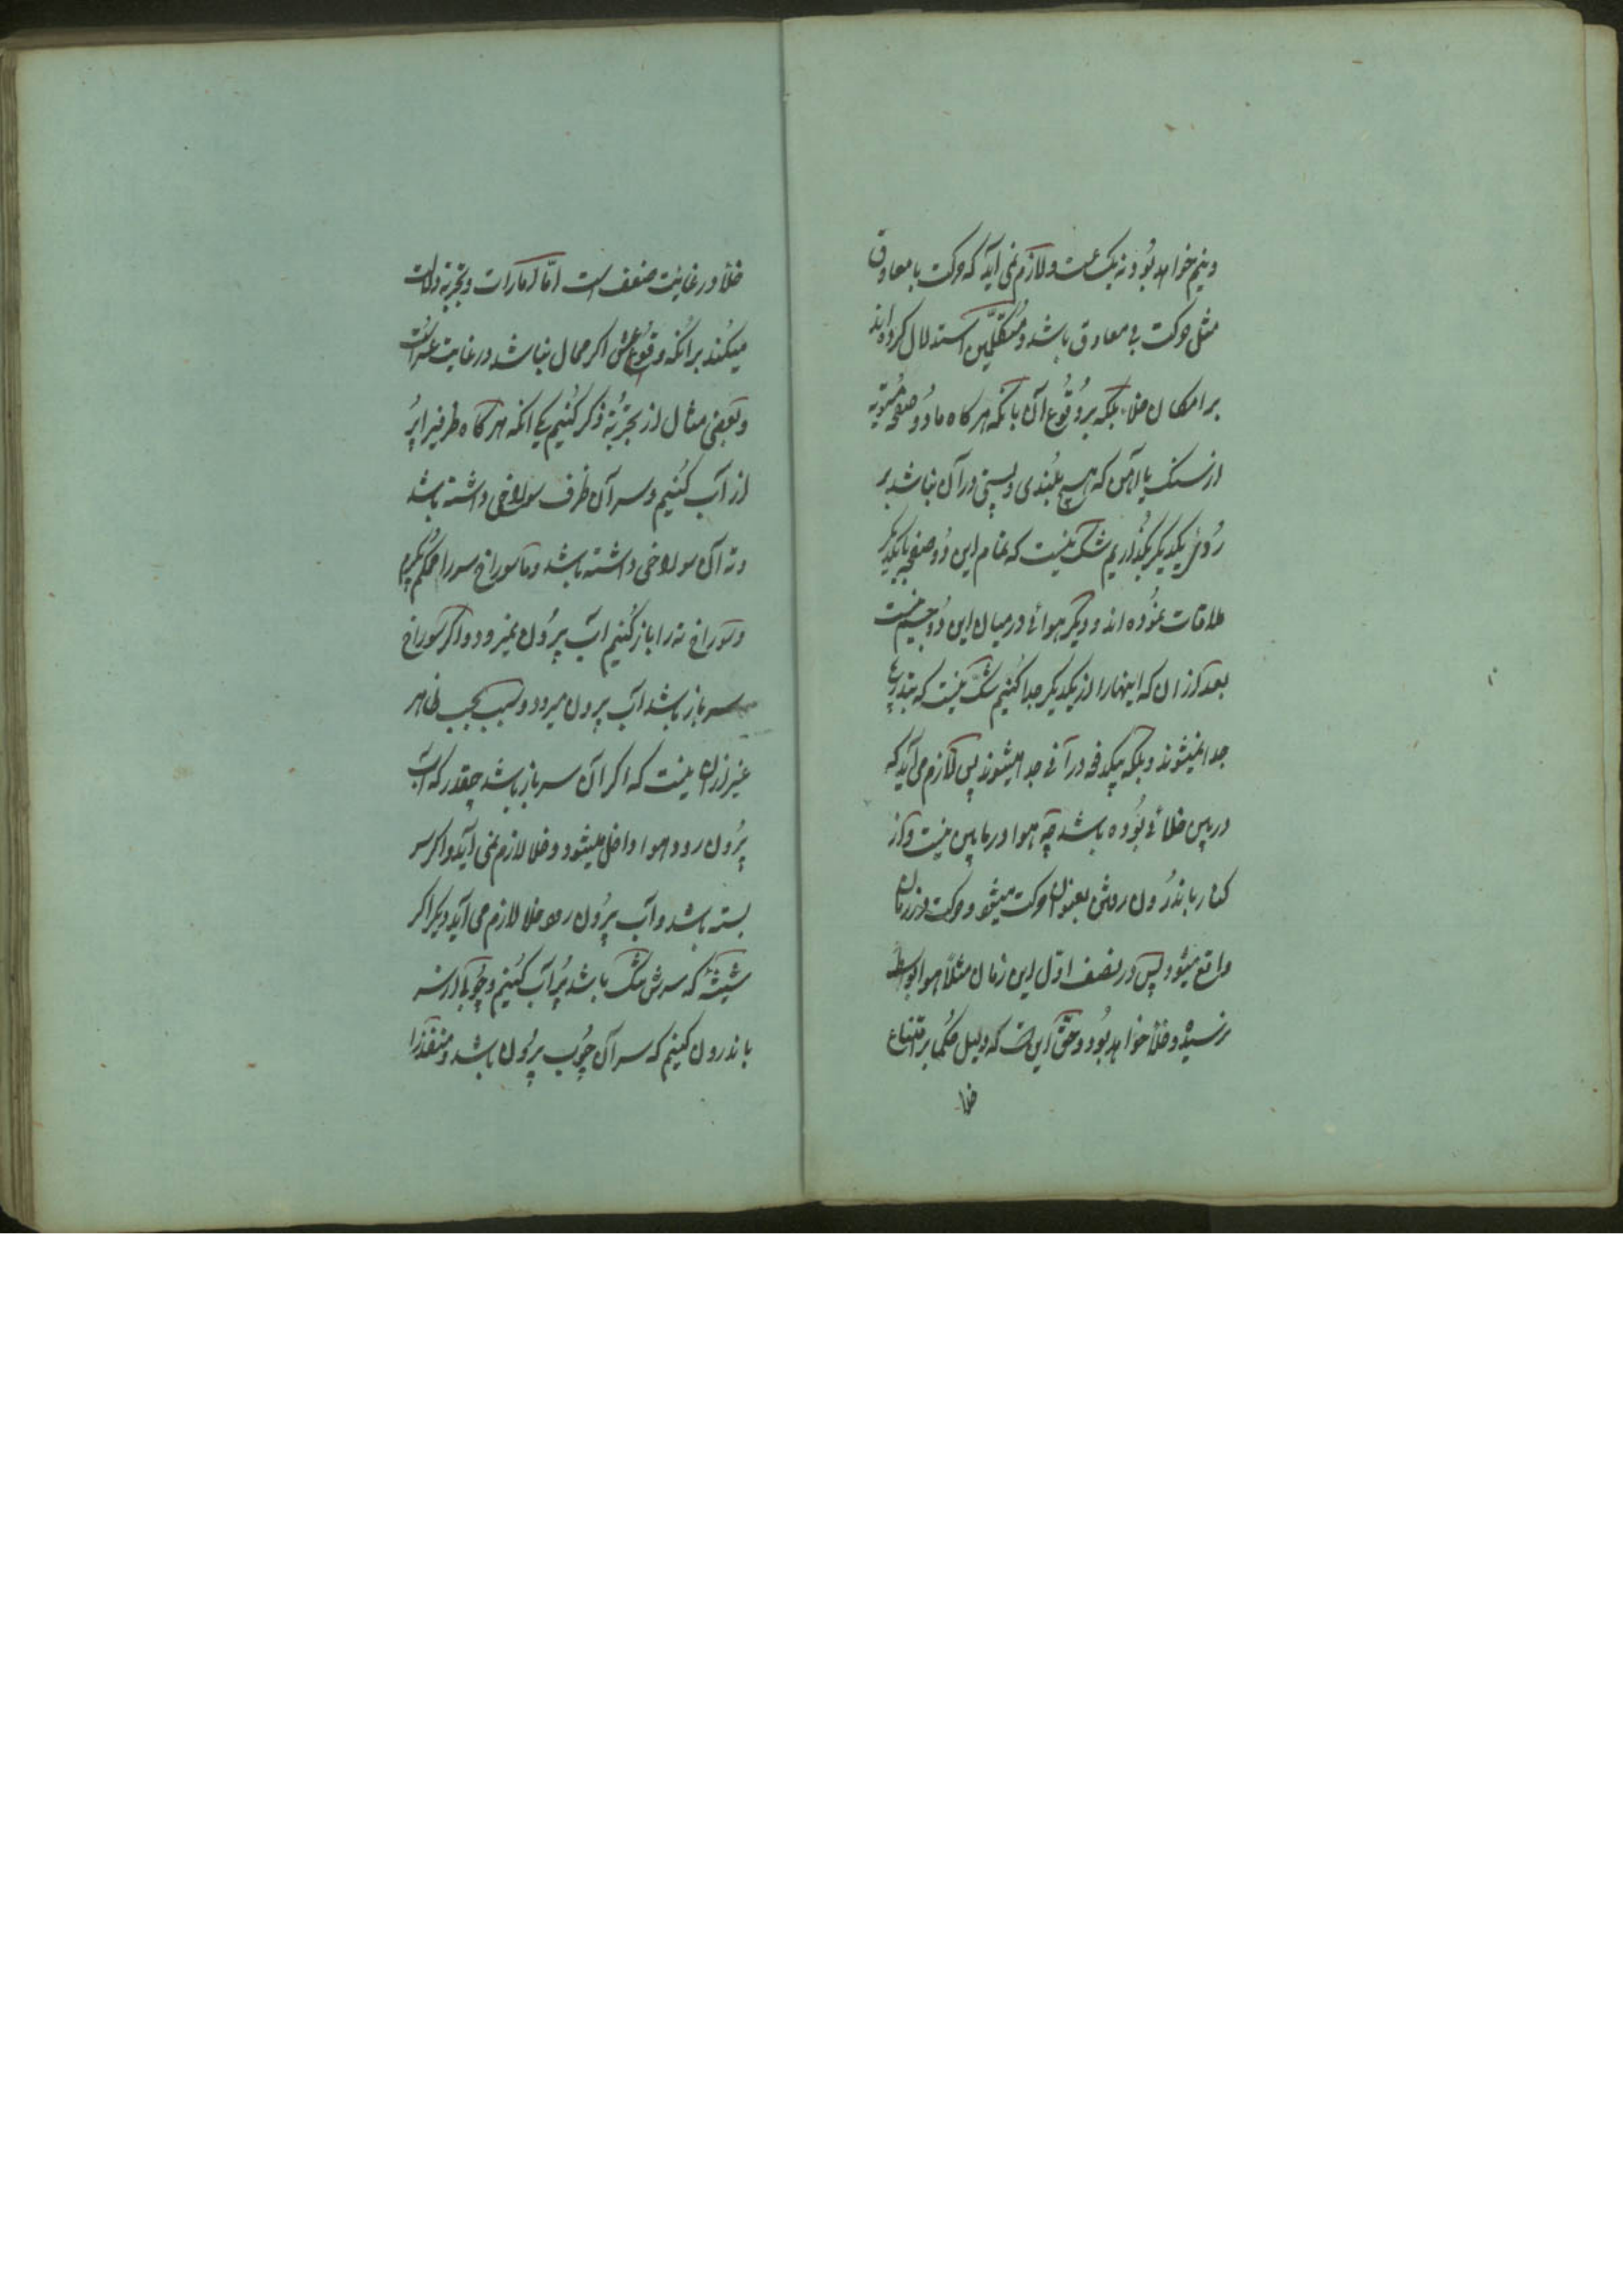 ونیم خواهد بود نه یک ساعت و لازم نمی آید که حرکت با معاوق
مثل حرکت بی معاوق باشد و متکلمین استدلال کرده اند
بر امکان خلاء بلکه بر وقوع آن بانکه هر کاه ما دو صفحه مستویه
از سنک یا آهن که هیچ بلندی و پستی در آن نباشد بر
روی یکدیکر بکذاریم شک نیست که تمام این دو صفحه با یکدیکر
ملاقات نموده اند و دیکر هوائی در میان این دو جسم نیست
بعد از ان که اینها را از یکدیکر جدا کنیم شک نیست که بتدریج
جدا نمیشوند و بلکه بیکدفعه در آنی جدا میشوند پس لازم می آید که
در بین خلائی بوده باشد چه هوا در مابین نیست و از
کنار باندرون رفتن بعنوان حرکت میشود و حرکت در زمان
واقع میشود پس در نصف اول این زمان مثلاً هوا بوسط
نرسیده و خلأ خواهد بود و حق این است که دلیل حکما بر امتناع
خلأ
خلأ در غایت ضعف است امّا امارات و تجربه دلالت
میکند بر انکه وقوعش اکر محال نباشد در غایت عسرتست
و بعضی مثال از تجربه ذکر کنیم یکی انکه هر کاه ظرفیرا پُر
از آب کنیم و سر آن ظرف سوراخی داشته باشد
و ته آن سوراخی داشته باشد و ما سوراخ سر را محکم بکیریم
و سوراخ ته را باز کنیم آب بیرون نمیرود و اکر سوراخ
سر باز باشد آب بیرون میرود و سبب بحسب ظاهر
غیر از این نیست که اکر آن سر باز باشد چقدر که آب
بیرون رود هوا داخل میشود و خلا لازم نمی آید و اکر سر
بسته باشد و آب بیرون رود خلا لازم می آید دیکر اکر
شیشهٔ که سرش تنک باشد پُر آب کنیم و چوبی از سر
باندرون کنیم که سر آن چوب بیرون باشد و منفذ را